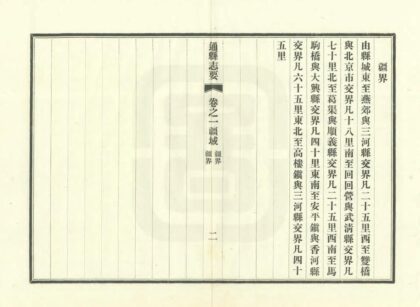 疆界
由縣城東至燕郊與三河縣交界凡二十五里西至雙橋
與北京市交界凡十八里南至回回營與武清縣交界凡
七十里北至葛渠與順義縣交界凡二十五里西南至馬
駒橋與大興縣交界凡四十里東南至安平鎮與香河縣
交界凡六十五里東北至高樓鎮與三河縣交界凡四十
五里
通縣志要
卷之一 疆域
疆界
疆界
二